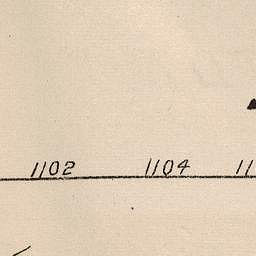 1102 1104 11